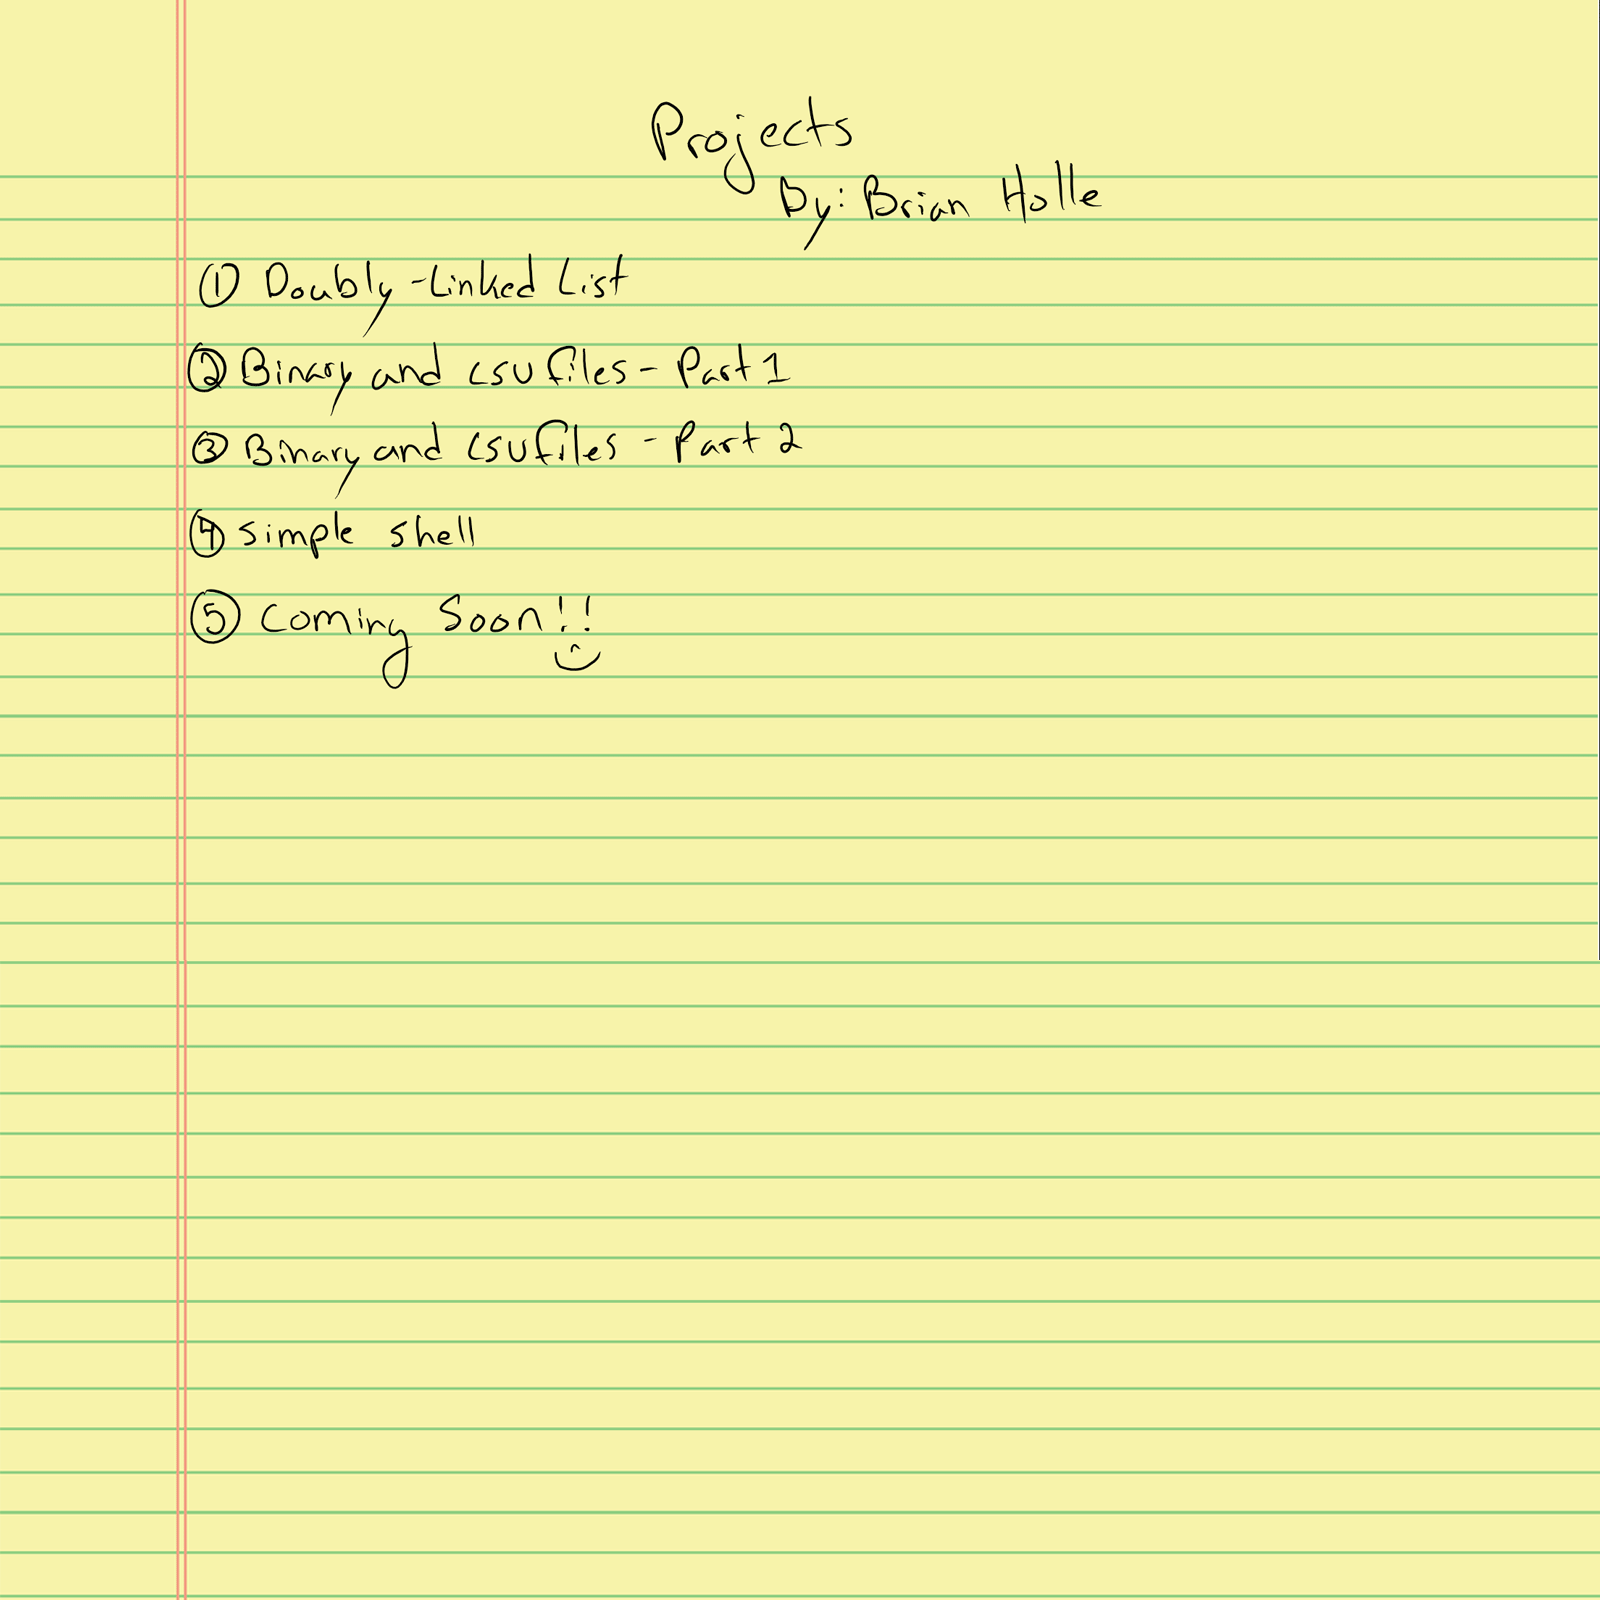 Projects
By: Brian Holle
① Doubly-Linked List
② Binary and csv files - Part 1
③ Binary and csv files - Part 2
④ simple shell
⑤ Coming Soon!!